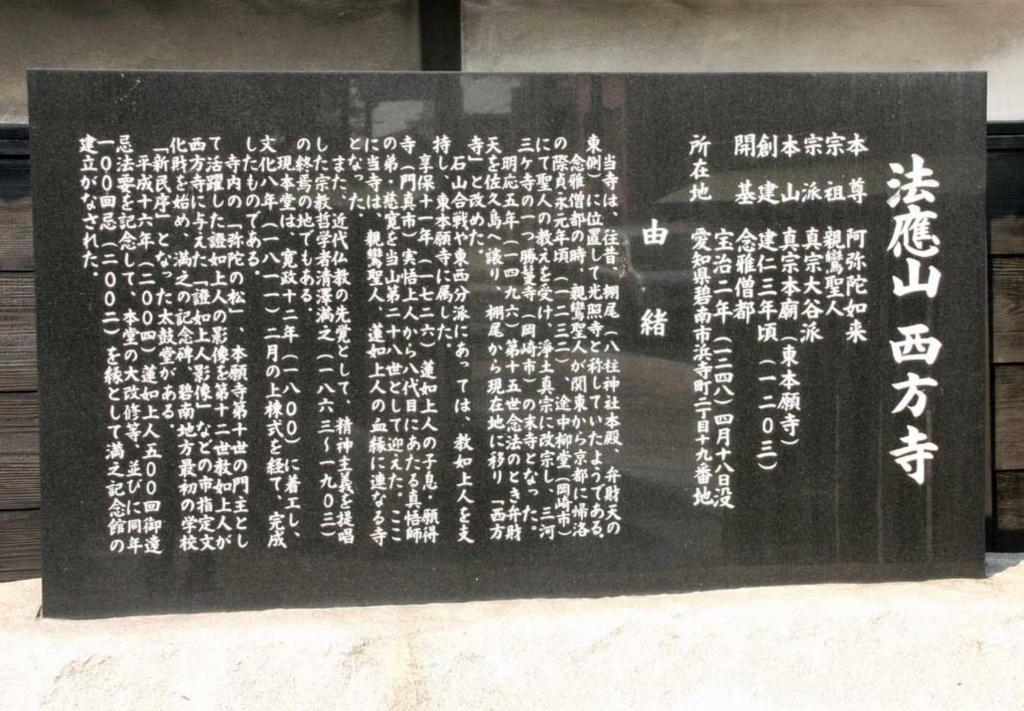 法應山 西方寺
本尊 阿弥陀如来
宗祖 親鸞聖人
宗派 真宗大谷派
本山 真宗本廟（東本願寺）
創建 建仁三年頃（一二〇三）
開基 念雅僧都
宝治二年（一二四八）四月十八日没
所在地 愛知県碧南市浜寺町二丁目十九番地
由緒
当寺は、往昔、棚尾（八柱神社本殿、弁財天の
東側）に位置して光照寺と称していたようである。
念雅僧都の時、親鸞聖人が関東から京都に帰洛
の際貞永元年頃（一二三二）、途中柳堂（岡崎市）
にて聖人の教えを受け、浄土真宗に改宗し、三河
三ヶ寺の一つ勝鬘寺（岡崎市）の末寺となった。
明応五年（一四九六）第十五世念法のとき弁財
天を佐久島へ譲り、棚尾から現在地に移り「西方
寺」と改めた。
石山合戦や東西分派にあっては、教如上人を支
持し、東本願寺に属した。
享保十一年（一七二六）蓮如上人の子息・願得
寺（門真市）実悟上人から八代目にあたる真悟師
の弟・慈寛を当山第二十八世として迎えた。ここ
に当寺は、親鸞聖人、蓮如上人の血縁に連なる寺
となった。
また、近代仏教の先覚として、精神主義を提唱
した宗教哲学者清澤満之（一八六三～一九〇三）
の終焉の地でもある。
現本堂は、寛政十二年（一八〇〇）に着工し、
文化八年（一八一一）二月の上棟式を経て、完成
したものである。
寺内の「弥陀の松」、本願寺第十世の門主とし
て活躍した證如上人の影像を第十二世教如上人が
西方寺に与えた「證如上人影像」などの市指定文
化財を始め、満之の記念碑、碧南地方最初の学校
「新民序」となった太鼓堂がある。
平成十六年（二〇〇四）蓮如上人五〇〇回御遠
忌法要を記念して、本堂の大改修等、並びに同年
一〇〇回忌（二〇〇二）を縁として満之記念館の
建立がなされた。